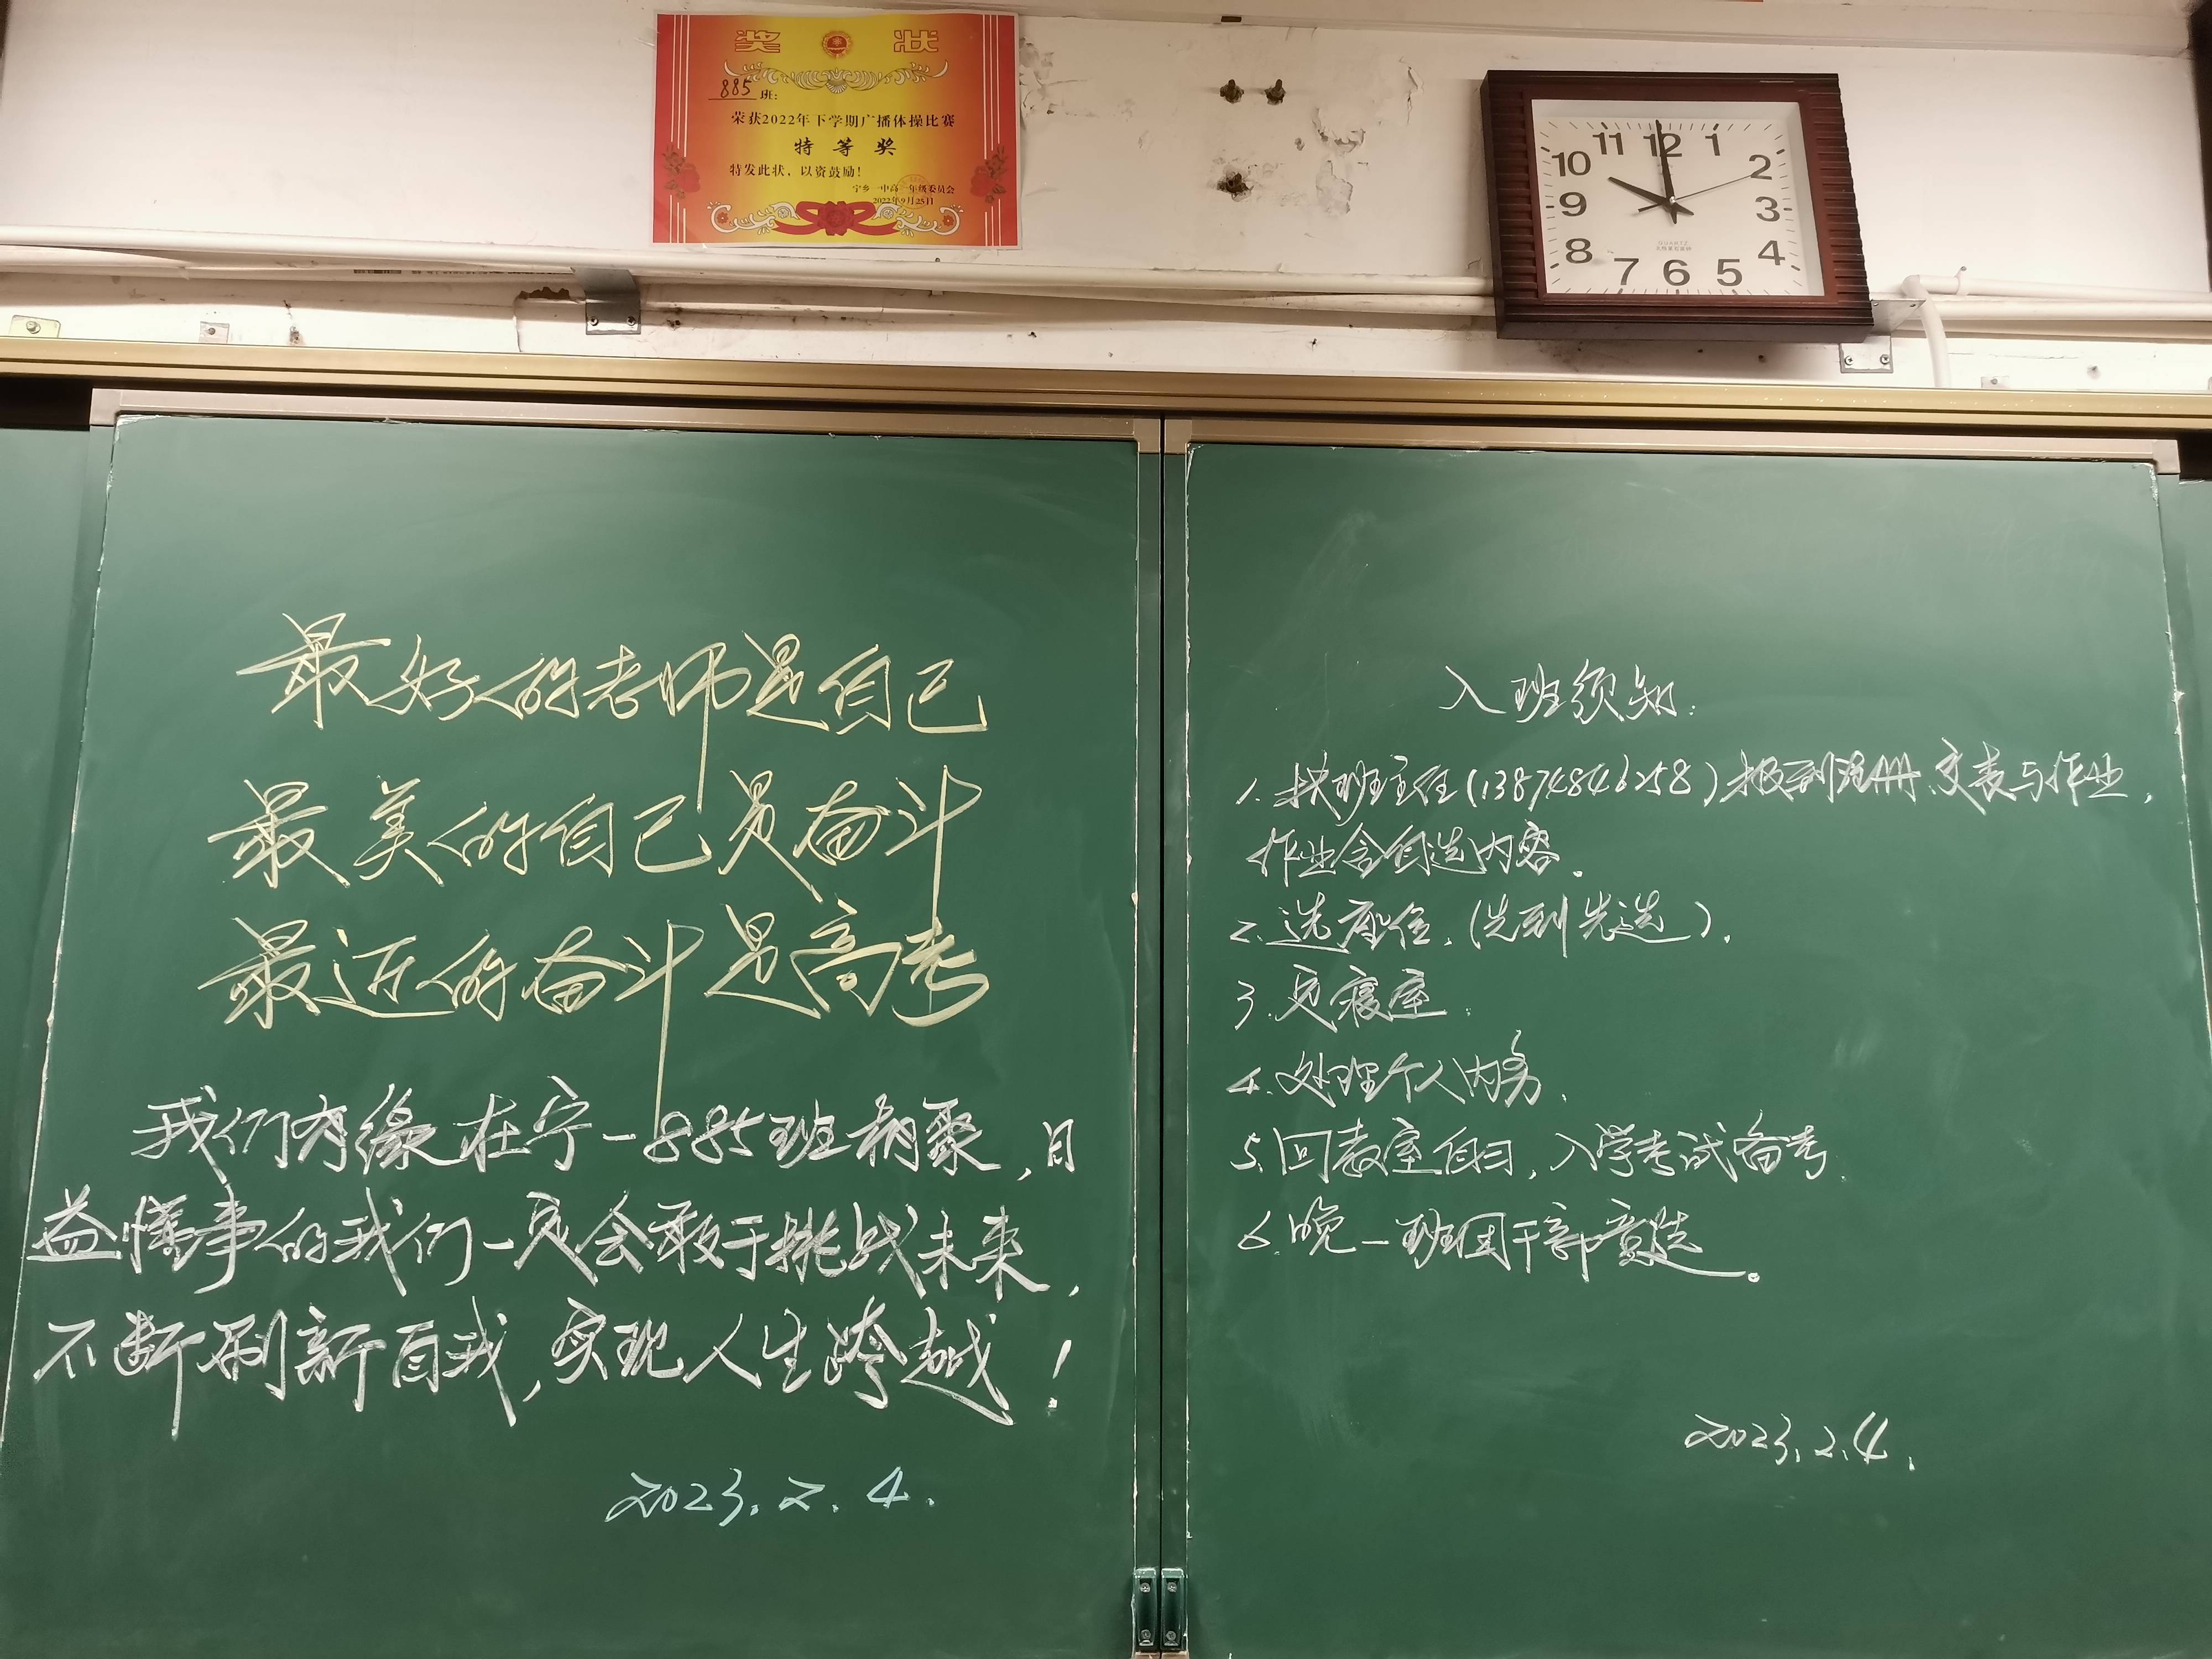 奖 状
885 班:
荣获2022年下学期广播体操比赛
特 等 奖
特发此状，以资鼓励!
宁乡一中高一年级委员会
2022年9月25日
11 12 1
10 2
9 3
8 4
7 6 5
QUARTZ
最好的老师是自己
最美的自己是奋斗
最近的奋斗是高考
我们有缘在宁一885班相聚,日
益懂事的我们一定会敢于挑战未来,
不断刷新自我,实现人生跨越!
2023.2.4.
入班须知:
1.找班主任(13874846258)报到注册、交表与作业,
作业含自选内容。
2.选座位.(先到先选).
3.见寝室.
4.处理个人内务.
5.回教室自习,入学考试备考.
6.晚一班团干部竞选。
2023.2.4.